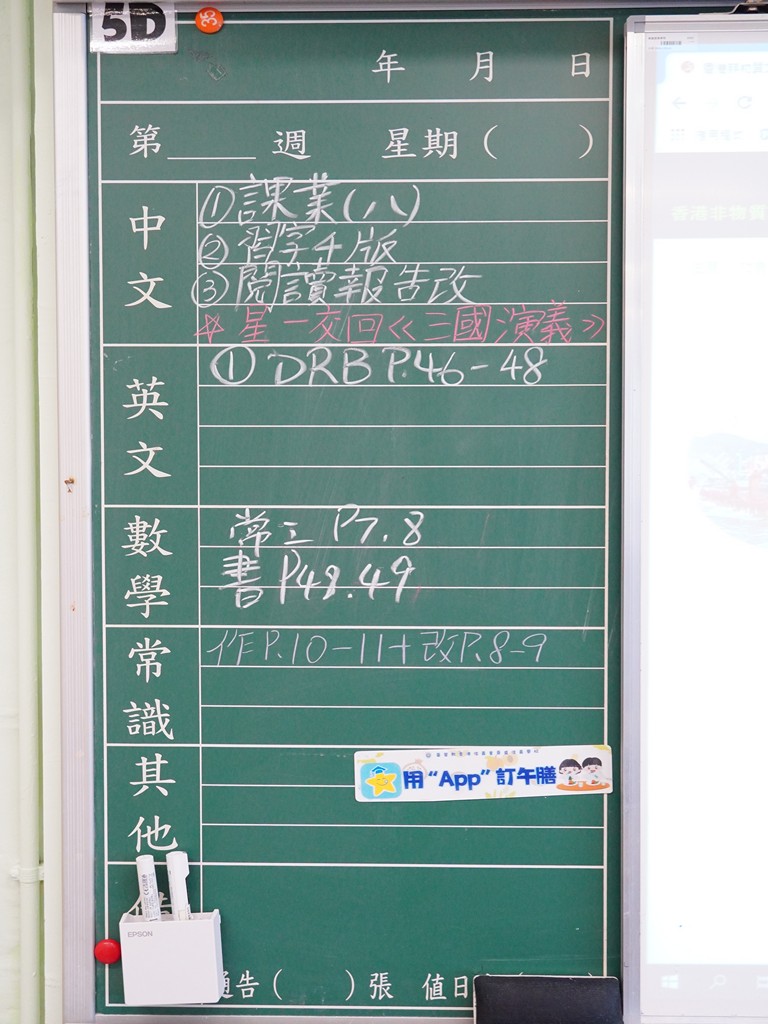 5D
年 月 日
第____週 星期( )
中文
①課業(八)
②習字4版
③閱讀報告改
☆星一交回《三國演義》
英文
① DRB P.46-48
數學
常工 P7.8
書 P48.49
常識
作P.10-11+改P.8-9
其他
用“App”訂午膳
EPSON
通告( )張 值日